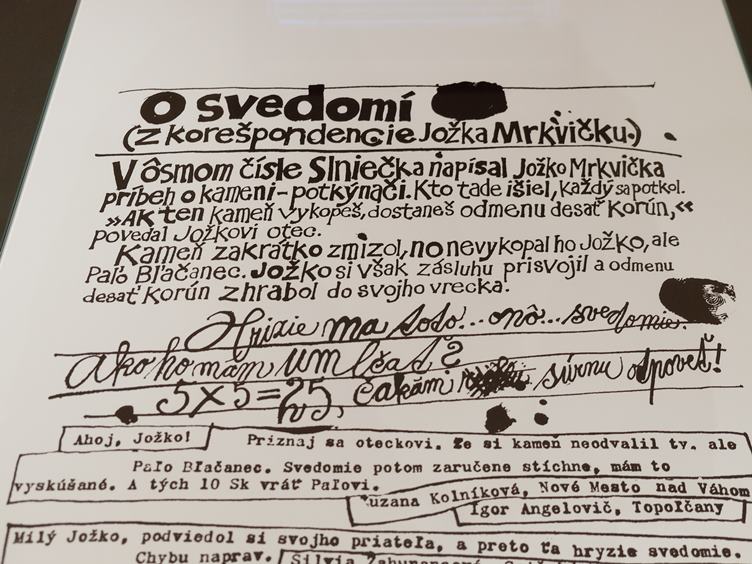 O svedomí
(z korešpondencie Jožka Mrkvičku.)
V ôsmom čísle Slniečka napísal Jožko Mrkvička
príbeh o kameni-potkýnači. Kto tade išiel, každý sa potkol.
»Ak ten kameň vykopeš, dostaneš odmenu desať korún,«
povedal Jožkovi otec.
Kameň zakrátko zmizol, no nevykopal ho Jožko, ale
Paľo Bľačanec. Jožko si však zásluhu prisvojil a odmenu
desať korún zhrabol do svojho vrecka!
Hrizie ma toto...onô...svedomie.
Ako ho mám umlčať?
5x5=25, čakám súrnu odpoveď!
Ahoj, Jožko! Priznaj sa oteckovi, že si kameň neodvalil ty, ale
Paľo Bľačanec. Svedomie potom zaručene stíchne, mám to
vyskúšané. A tých 10 Sk vráť Paľovi.
Zuzana Kolníková, Nové Mesto nad Váhom
Igor Angelovič, Topoľčany
Milý Jožko, podviedol si svojho priateľa, a preto ťa hryzie svedomie.
Chybu naprav. Silvia